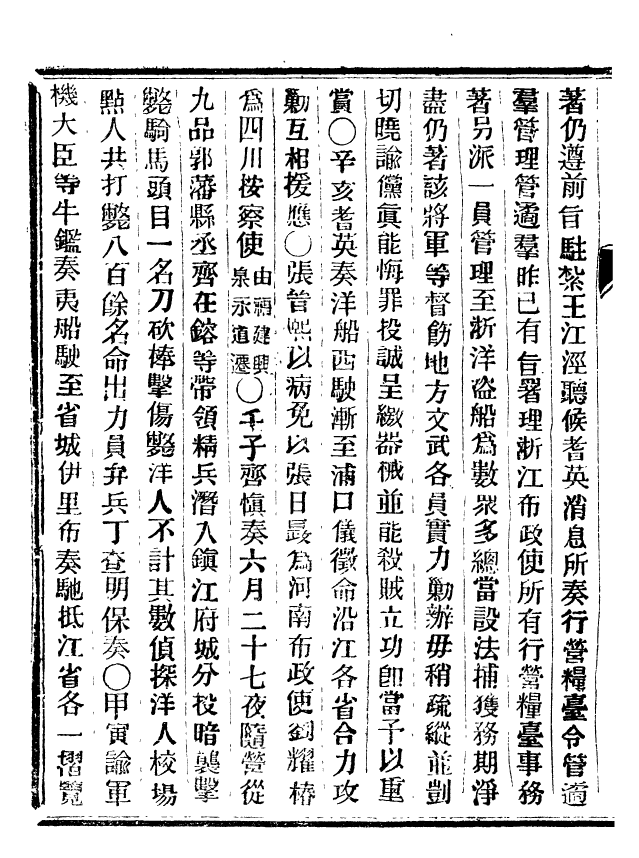 著仍遵前旨駐紮王江涇聽候耆英消息所奏行營糧臺令管遹
羣管理管遹羣昨已有旨署理浙江布政使所有行營糧臺事務
著另派一員管理至浙洋盗船爲數衆多總當設法捕獲務期淨
盡仍著該將軍等督飭地方文武各員實力勦辦毋稍疏縱並剴
切曉諭儻眞能悔罪投誠呈繳器械並能殺賊立功卽當予以重
賞〇辛亥耆英奏洋船西駛漸至浦口儀徵命沿江各省合力攻
勦互相援應〇張曾熙以病免以張日晸爲河南布政使劉耀椿
爲四川按察使由福建興泉永道遷〇壬子齊愼奏六月二十七夜隨營從
九品郭藩縣丞齊在鎔等帶領精兵潛入鎭江府城分投暗襲擊
斃騎馬頭目一名刀砍棒擊傷斃洋人不計其數偵探洋人校場
點人共打斃八百餘名命出力員弁兵丁查明保奏〇甲寅諭軍
機大臣等牛鑑奏夷船駛至省城伊里布奏馳抵江省各一摺覽